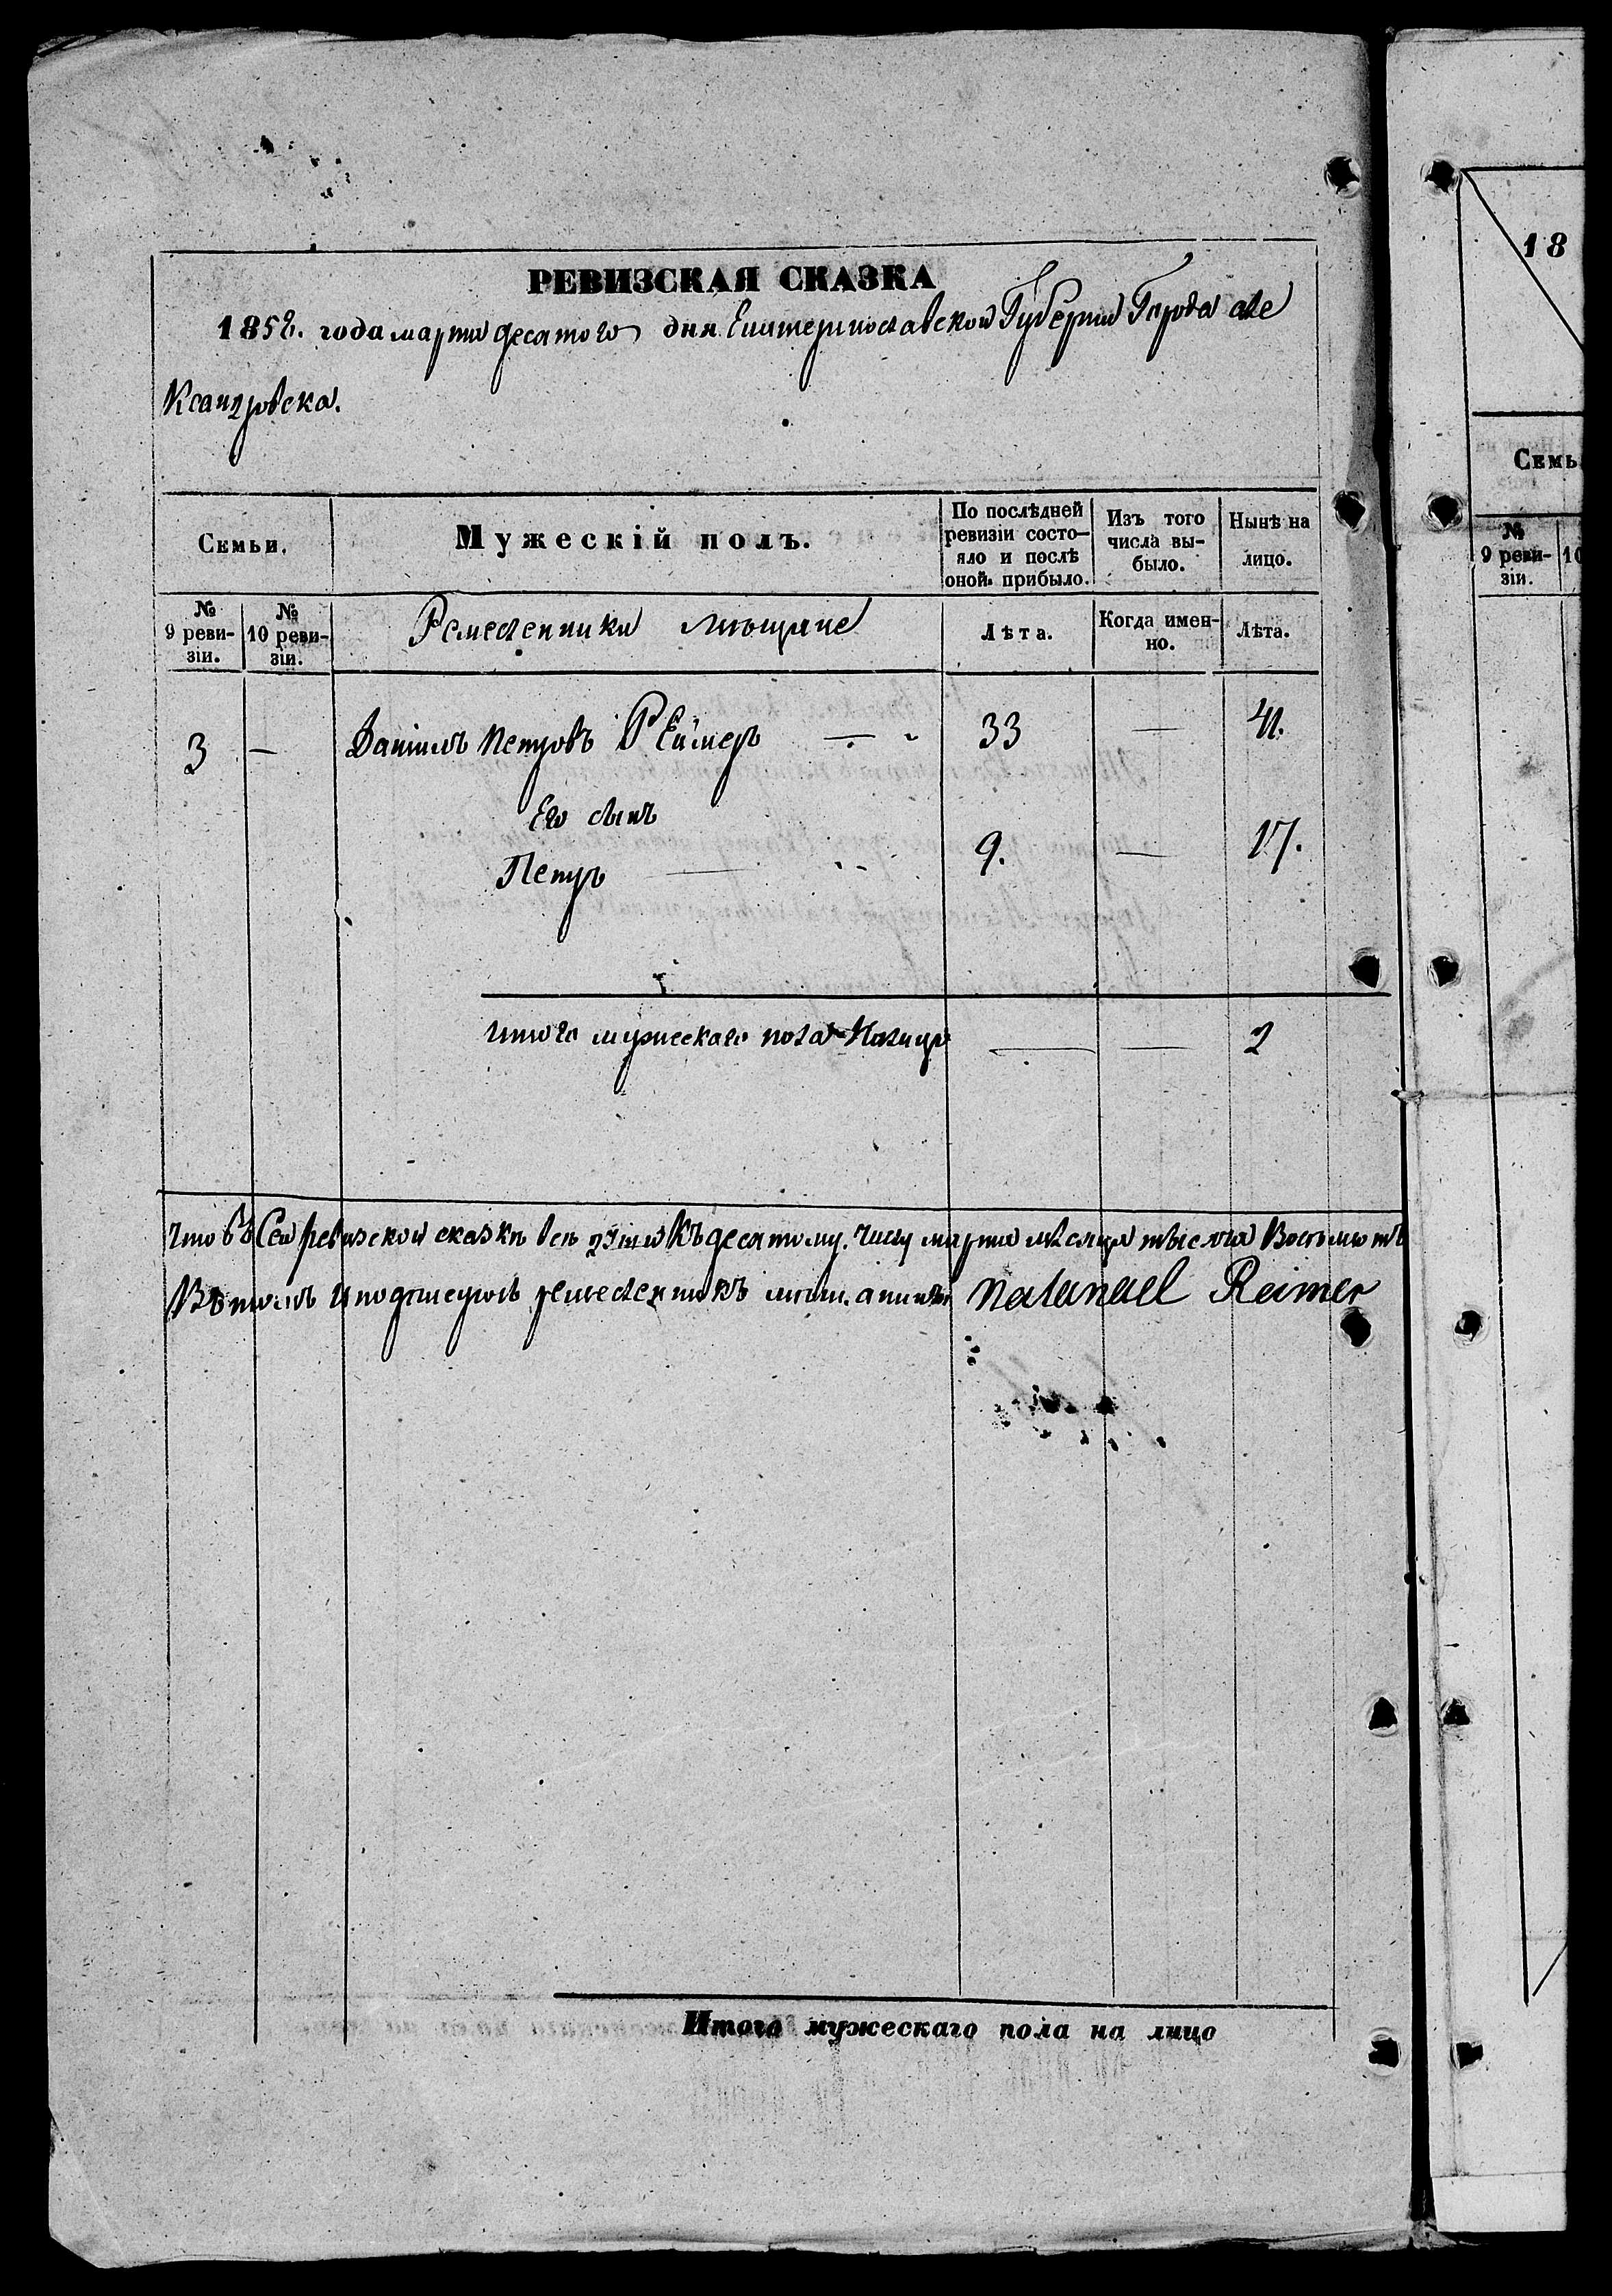 РЕВИЗСКАЯ СКАЗКА
1858. года марта десятого дня Екатеринославской Губерніи Города але
Ксандровска.
Семьи.
Мужескій полъ.
По послѣдней ревизіи состо-
яло и послѣ оной прибыло.
Изъ того числа вы-
было.
Нынѣ на лицо.
№ 9 реви-
зіи.
№ 10 реви-
зіи.
Ремесленники мѣщане
Лѣта.
Когда имен-
но.
Лѣта.
3 — Даніилъ Петровъ Реймеръ — 33 — 41.
Его сынъ
Петръ — 9. — 17.
итого мужескаго пола Налицо — — 2
Что въ Сей ревизской сказкѣ всѣ души Къ десятому числу марта мѣсяца тысяча Восемьсотъ
Въ томъ и подпи ремесленникъ мѣщанинъ Natanael Reimer
Итого мужескаго пола на лицо
18
Семь
№ 9 реви-
зіи.
10